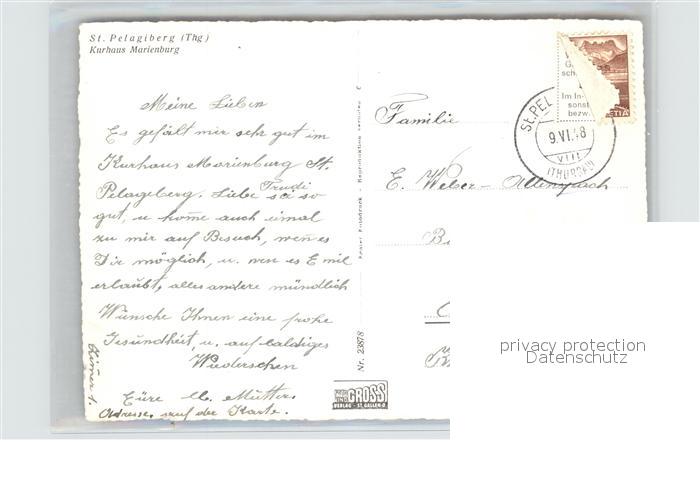 St. Pelagiberg (Thg)
Kurhaus Marienburg
Meine Lieben
Es gefält mir sehr gut im
Kurhaus Marienburg St.
Pelageberg. Liebe Trudi sei so
gut, u kome auch eimal
zu mir auf Besuch, wen es
Dir möglich, u. wen es Emil
erlaubt, alles andere mündlich
Wünsche Ihnen eine frohe
Gesundheit, u. auf baldiges
Wiedersehen
Eure lb. Mutter.
Adresse, auf der Karte.
Nr. 23878
Echter Fotodruck - Reproduktion verboten
GROSS
VERLAG - ST. GALLEN-O
Familie
E. Weber-Allenspach
ST.PEL
9.VI.48
VIII
(THURGAU)
Im In-
sonst
bezw.
privacy protection
Datenschutz